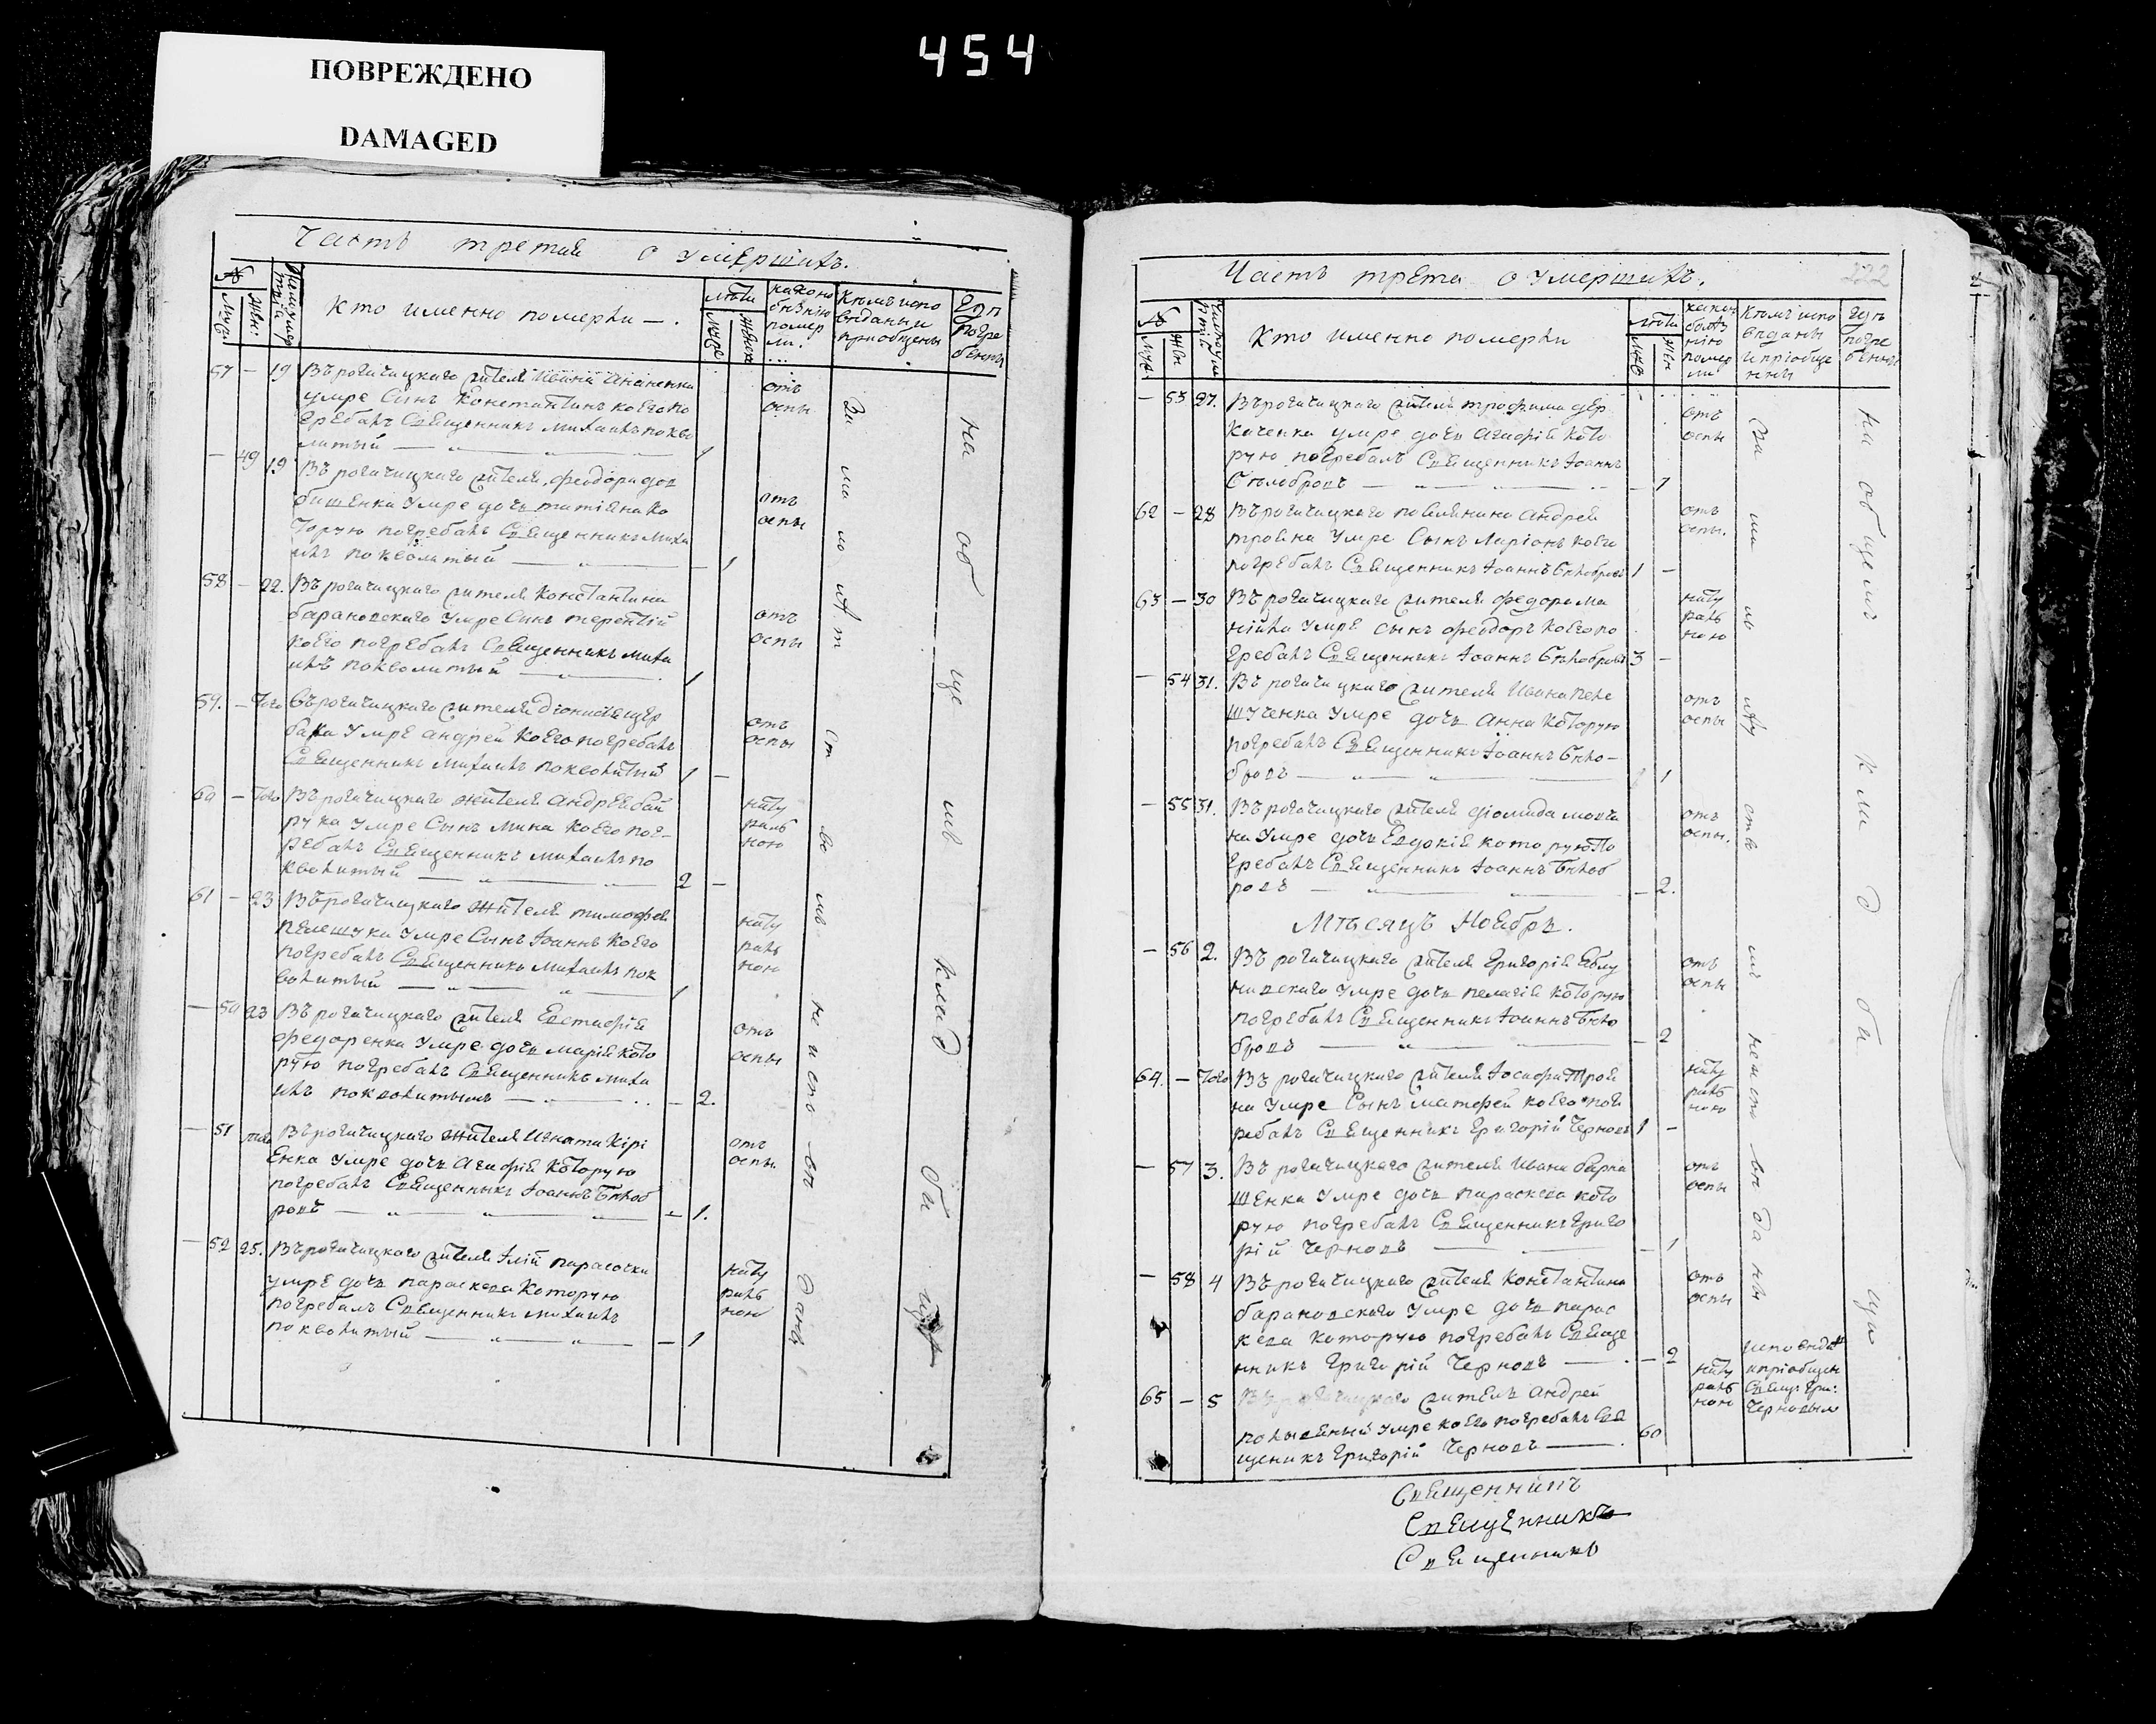 454
ПОВРЕЖДЕНО
DAMAGED
Часть третая о умершихъ.
№
Муж:
Жен:
Кто именно померли —.
лѣта
Муже
Женск
какою
болѣзнію
помер
ли.
Кѣмъ испо
вѣданы и
приобщены
Гдѣ
погре
бенны
57 — 19 Въ рогачицкаго жителя Ивана Ананенка
умре Сынъ Константинъ коего по
гребалъ Священникъ Михаилъ покво
литый — 1
отъ
оспы
— 49 19 Въ рогачицкаго жителя Феодора дов
бишенка умре дочь татіяна ко
торую погребалъ Священникъ Миха
илъ покволитый — 1
отъ
оспы
58 — 22. Въ рогачицкаго жителя Константина
барановскаго умре Сынъ терентій
коего погребалъ Священникъ Миха
илъ покволитый — 1
отъ
оспы
59. — того Въ рогачицкаго жителя діонисія щер
бака умре андрей коего погребалъ
Священникъ Михаилъ покволитый 1 —
отъ
оспы
60 — того Въ рогачицкаго жителя андрея бай
рука умре Сынъ Мина коего пог
ребалъ Священникъ Михаилъ по
кволитый — 2 —
нату
раль
ною
61 — 23 Въ рогачицкаго жителя тимофея
пелешука умре Сынъ Іоаннъ коего
погребалъ Священникъ Михаилъ пок
волитый — 1
нату
раль
ною
— 50 23 Въ рогачицкаго жителя Евстафія
федоренка умре дочь марія кото
рую погребалъ Священникъ Миха
илъ покволитымъ — 2.
отъ
оспы
— 51 того Въ рогачицкаго жителя Игната Кірі
енка умре дочь Агафія которую
погребалъ Священникъ Іоаннъ Бѣлоб
ровъ — 1.
отъ
оспы
— 52 25. Въ рогачицкаго жителя Ілій парасочки
умре дочь параскева Которую
погребалъ Священникъ Михаилъ
покволитый — 1
нату
раль
ною
За малолѣтствомъ не исповѣданы
на общемъ кладбищи
Часть трета о умершихъ.
222
№
Муж:
Жен
Кто именно померли
лѣта
Муж
жен
какою
болѣз
нію
помер
ли
Кѣмъ испо
вѣданы
и пріобще
нны
Гдѣ
погре
бенны
— 53 27. Въ рогачицкаго жителя трофима дер
каченка умре дочь Агафія кото
рую погребалъ Священникъ Іоаннъ
Бѣлобровъ — 1
отъ
оспы
62 — 28 Въ рогачицкаго поселянина Андрея
трояна умре Сынъ Ларіонъ коего
погребалъ Священникъ Іоаннъ Бѣлобровъ 1 —
отъ
оспы.
63 — 30 Въ рогачицкаго жителя федора ма
нійка умре сынъ феодоръ коего по
гребалъ Священникъ Іоаннъ Бѣлобровъ 3 —
нату
раль
ною
— 54 31. Въ рогачицкаго жителя Ивана пеле
шученка умре дочь Анна которую
погребалъ Священникъ Іоаннъ Бѣло
бровъ — 1
отъ
оспы
— 55 31. Въ рогачицкаго жителя діомида мовча
на умре дочь Евдокія которую по
гребалъ Священникъ Іоаннъ Бѣлоб
ровъ — 2.
отъ
оспы.
Мѣсяцъ Ноябрь.
— 56 2. Въ рогачицкаго жителя Григорія Яблу
новскаго умре дочь пелагія которую
погребалъ Священникъ Іоаннъ Бѣло
бровъ — 2
отъ
оспы
64. — того Въ рогачицкаго жителя Іосифа Троя
на умре Сынъ Матфей коего пог
ребалъ Священникъ Григорій Черновъ 1 —
нату
раль
ною
— 57 3. Въ рогачицкаго жителя Ивана барка
шенка умре дочь параскева кото
рую погребалъ Священникъ Григо
рій Черновъ — 1
отъ
оспы
— 58 4 Въ рогачицкаго жителя Константина
барановскаго умре дочь парас
кева которую погребалъ Священ
нникъ Григорій Черновъ — 2
отъ
оспы
65 — 5 Въ рогачицкаго жителъ Андрей
умре коего погребалъ Свя
щеникъ Григорій Черновъ — 60
нату
раль
ною
исповѣдан
и пріобщен
Свящ: Гри:
Черновым
За малолѣтствомъ неисповѣданы
на общемъ кладбищи
Священникъ
Священникъ
Священникъ